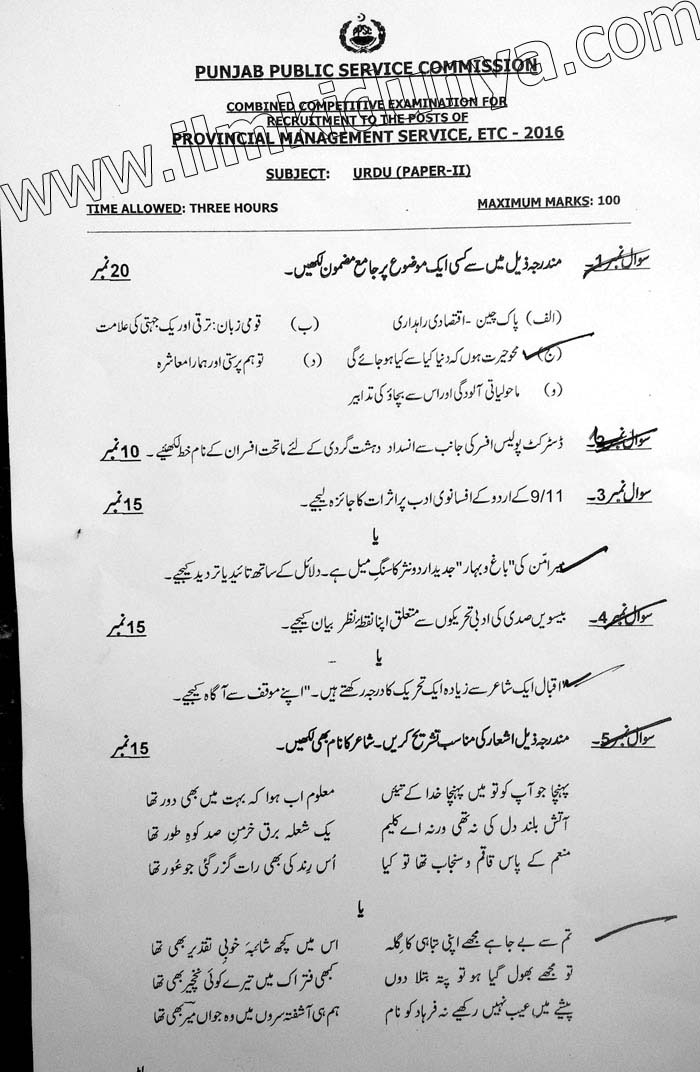 PPSC
PUNJAB PUBLIC SERVICE COMMISSION
COMBINED COMPETITIVE EXAMINATION FOR
RECRUITMENT TO THE POSTS OF
PROVINCIAL MANAGEMENT SERVICE, ETC - 2016
SUBJECT: URDU (PAPER-II)
TIME ALLOWED: THREE HOURS MAXIMUM MARKS: 100
www.ilmkidunya.com
سوال نمبر 1۔ مندرجہ ذیل میں سے کسی ایک موضوع پر جامع مضمون لکھیں۔ 20 نمبر
(الف) پاک چین - اقتصادی راہداری (ب) قومی زبان: ترقی اور یک جہتی کی علامت
(ج) محوِ حیرت ہوں کہ دنیا کیا سے کیا ہو جائے گی (د) توہم پرستی اور ہمارا معاشرہ
(و) ماحولیاتی آلودگی اور اس سے بچاؤ کی تدابیر
سوال نمبر 2۔ ڈسٹرکٹ پولیس افسر کی جانب سے انسداد دہشت گردی کے لئے ماتحت افسران کے نام خط لکھیئے۔ 10 نمبر
سوال نمبر 3۔ 9/11 کے اردو کے افسانوی ادب پر اثرات کا جائزہ لیجیے۔ 15 نمبر
یا
میر امّن کی "باغ و بہار" جدید اردو نثر کا سنگِ میل ہے۔ دلائل کے ساتھ تائید یا تردید کیجیے۔
سوال نمبر 4۔ بیسویں صدی کی ادبی تحریکوں سے متعلق اپنا نقطۂ نظر بیان کیجیے۔ 15 نمبر
یا
"اقبال ایک شاعر سے زیادہ ایک تحریک کا درجہ رکھتے ہیں۔" اپنے موقف سے آگاہ کیجیے۔
سوال نمبر 5۔ مندرجہ ذیل اشعار کی مناسب تشریح کریں۔ شاعر کا نام بھی لکھیں۔ 15 نمبر
پہنچا جو آپ کو تو میں پہنچا خدا کے تئیں معلوم اب ہوا کہ بہت میں بھی دور تھا
آتش بلند دل کی نہ تھی ورنہ اے کلیم یک شعلہ برق خرمنِ صد کوہِ طور تھا
منعم کے پاس قاقم و سنجاب تھا تو کیا اُس رِند کی بھی رات گزر گئی جو عُور تھا
یا
تم سے بے جا ہے مجھے اپنی تباہی کا گِلہ اس میں کچھ شائبۂ خوبیِ تقدیر بھی تھا
تو مجھے بھول گیا ہو تو پتہ بتلا دوں کبھی فتراک میں تیرے کوئی نخچیر بھی تھا
پیشے میں عیب نہیں رکھیے نہ فرہاد کو نام ہم ہی آشفتہ سروں میں وہ جواں میر بھی تھا